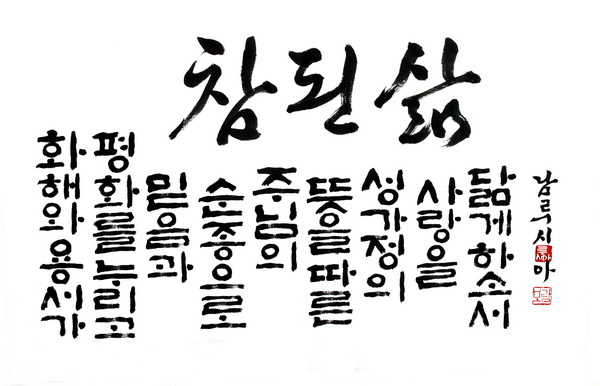 참된 삶
화해와 용서가
평화를 누리고
믿음과
순종으로
주님의
뜻을 따른
성가정의
사랑을
닮게 하소서
남루시아